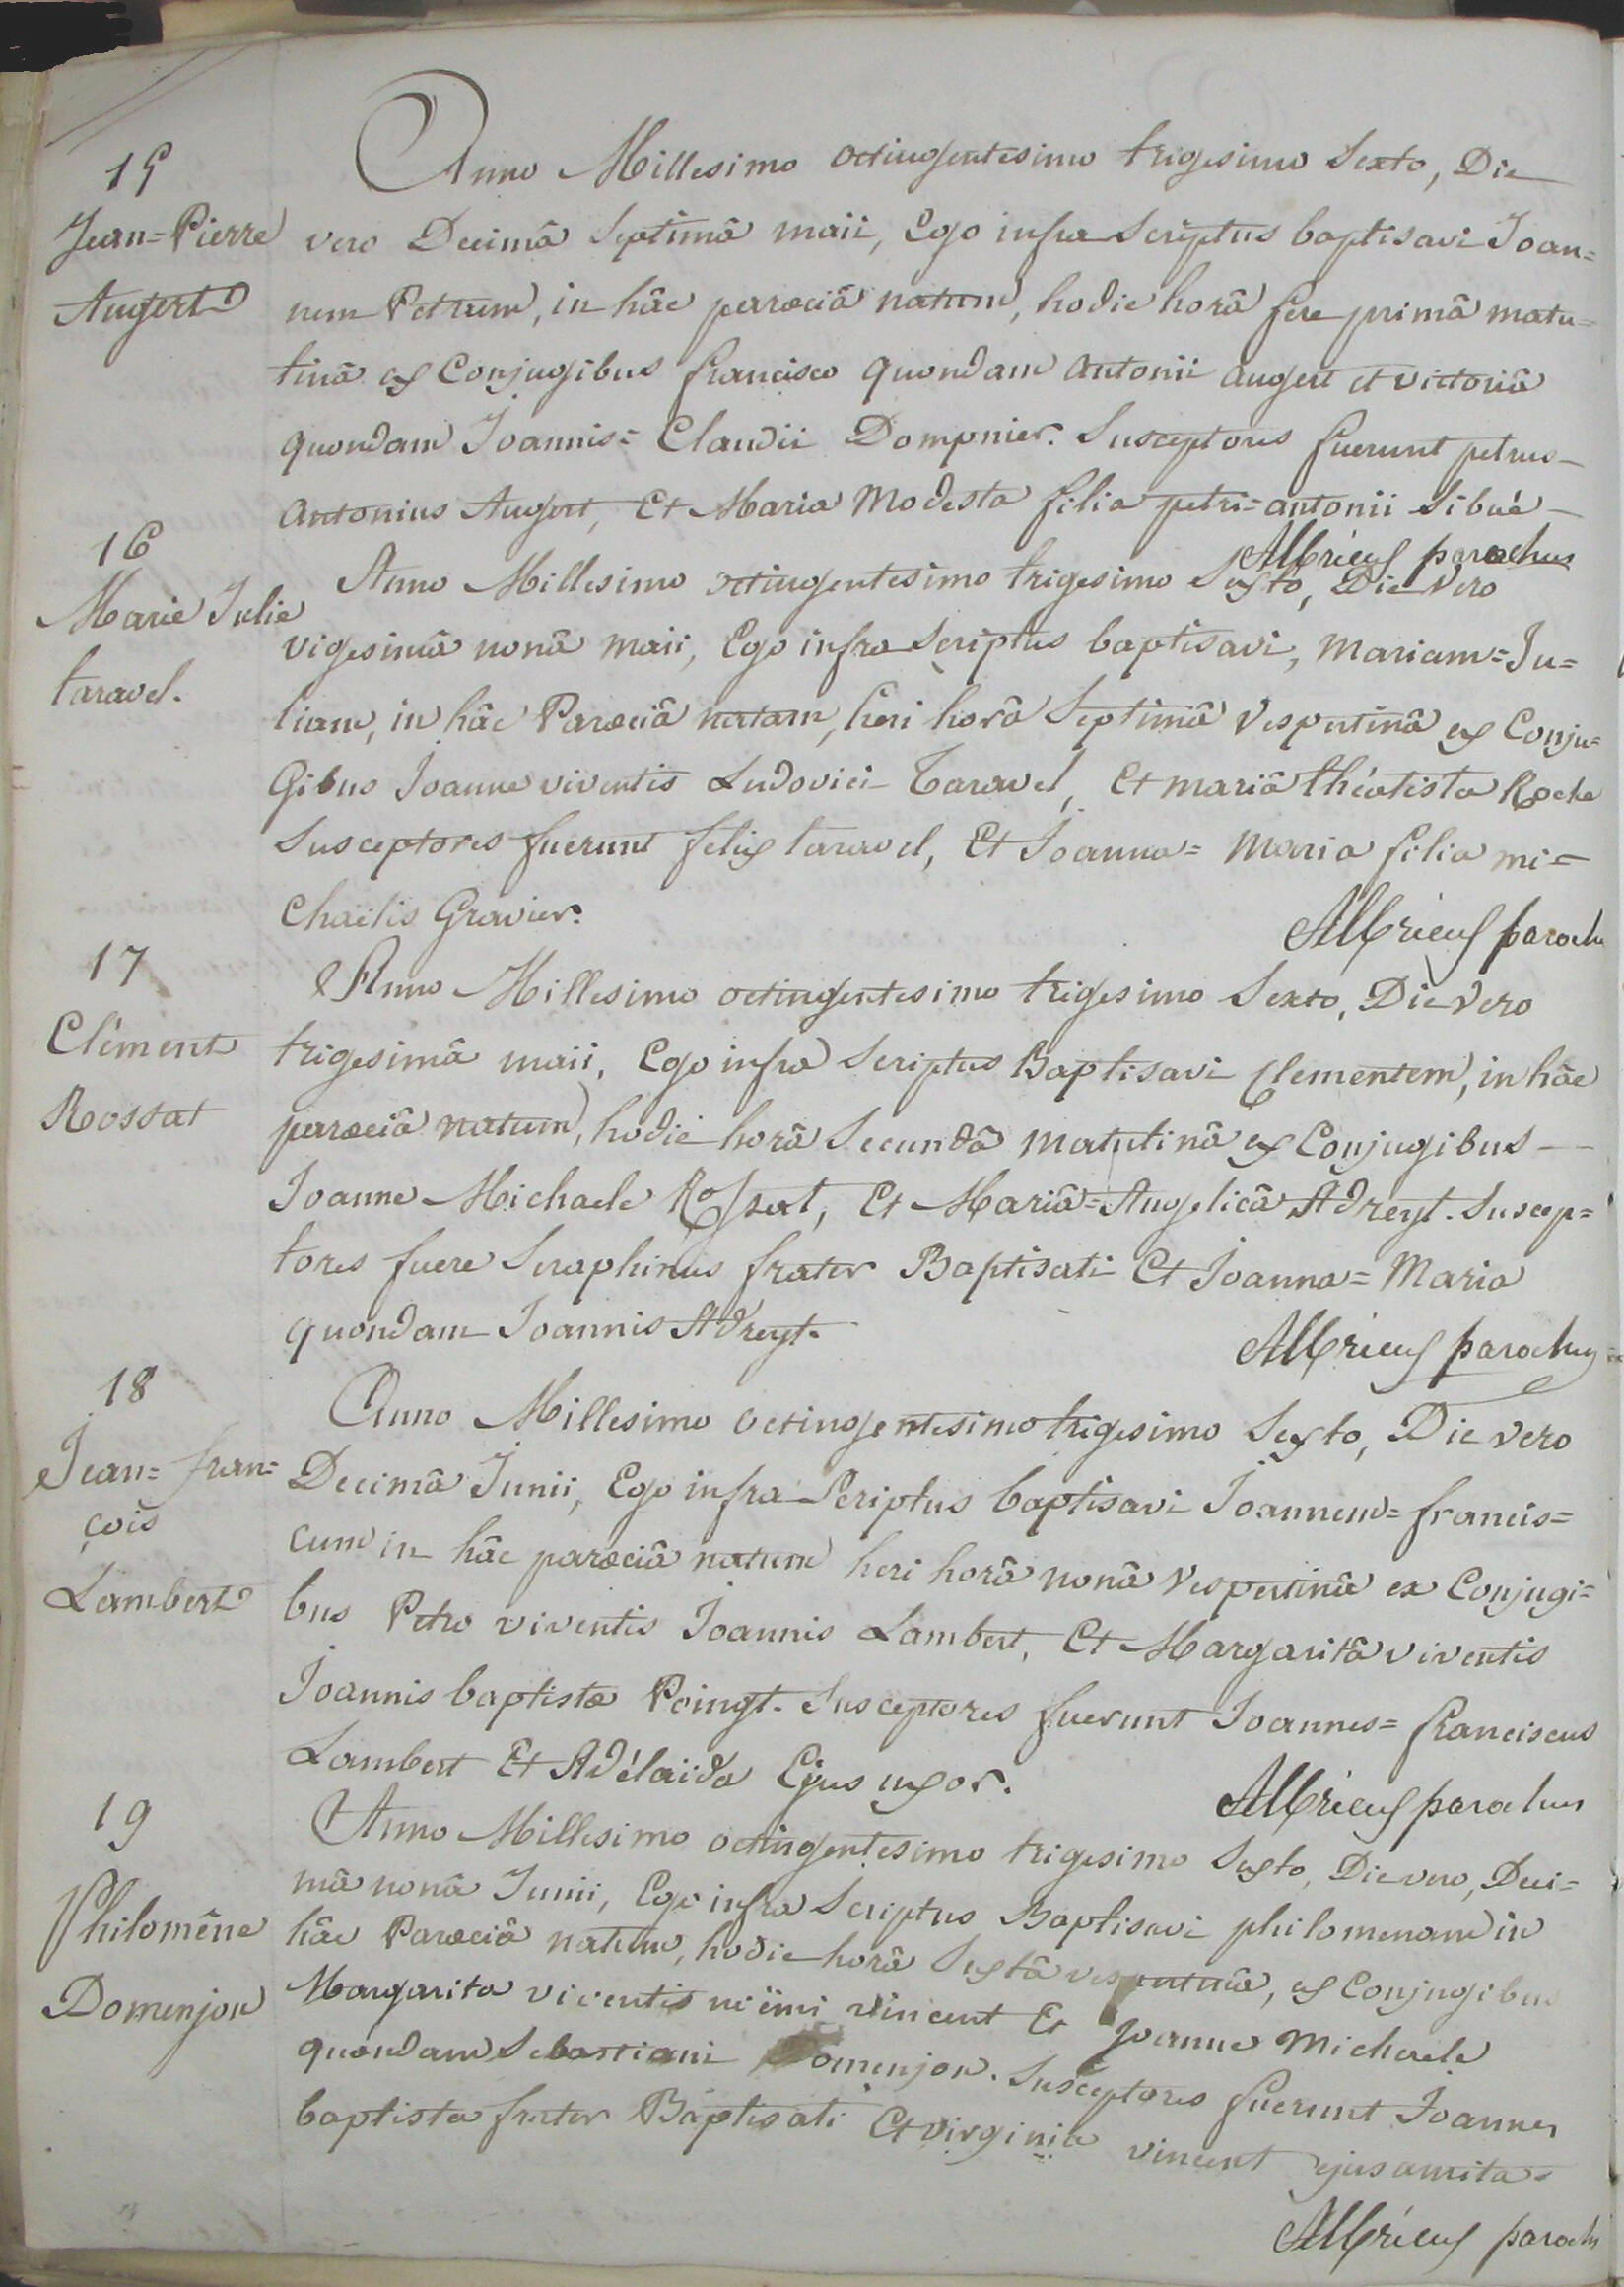 15
Jean=Pierre
Augert
Anno Millesimo octingentesimo trigesimo Sexto, Die
vero Decimâ Septimâ maii, Ego infra Scriptus baptisavi Joan=
nem Petrum, in hâc paræciâ natum, hodie horâ fere primâ matu=
tinâ ex Conjugibus francisco quondam Antonii augert et victoriâ
quondam Joannis=Claudii Dompnier. Susceptores fuerunt petrus
Antonius Augert, Et Maria Modesta filia petri=antonii Sibué
Albrieux parochus
16
Marie Julie
taravel.
Anno Millesimo octingentesimo trigesimo Sexto, Die vero
vigesimâ nonâ maii, Ego infra Scriptus baptisavi, mariam=Ju=
liam, in hâc Paræciâ natam, heri horâ Septimâ vespertinâ ex Conju=
Gibus Joanne viventis Ludovici Taravel, Et mariâ théotista Roche
Susceptores fuerunt felix taravel, Et Joanna=Maria filia mi=
chaëlis Gravier.
Albrieux paroch
17
Clément
Rossat
Anno Millesimo octingentesimo trigesimo Sexto, Die vero
trigesimâ maii, Ego infra Scriptus Baptisavi Clementem, in hâc
paræciâ natum, hodie horâ Secundâ matutinâ ex Conjugibus
Joanne Michaele Rossat, Et Mariâ=Angelicâ Adreyt. Suscep=
tores fuere Seraphinus frater Baptisati Et Joanna=Maria
quondam Joannis Adreyt.
Albrieux parochus
18
Jean=fran=
çois
Lambert
Anno Millesimo octingentesimo trigesimo Sexto, Die vero
Decimâ Junii, Ego infra Scriptus baptisavi Joannem=francis=
cum in hâc paræciâ natum heri horâ nonâ vespertinâ ex Conjugi=
bus Petro viventis Joannis Lambert, Et Margaritâ viventis
Joannis baptistæ Poingt. Susceptores fuerunt Joannes=franciscus
Lambert Et Adélaida Ejus uxor.
Albrieux parochus
19
Philomêne
Domenjon
Anno Millesimo octingentesimo trigesimo Sexto, Die vero, Deci=
mâ nonâ Junii, Ego infra Scriptus Baptisavi philomenam in
hâc Paræciâ natum, hodie horâ Sextâ vespertinâ, ex Conjugibus
Margarita viventis vincent Et Joanne Michaele
quondam Sebastiani Domenjon. Susceptores fuerunt Joannes
baptista frater Baptisati Et virginia vincent ejus amita.
Albrieux paroch